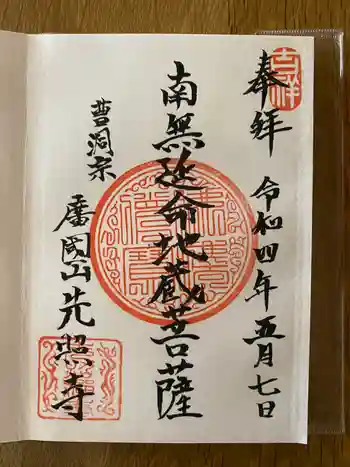 奉拝
吉祥
令和四年五月七日
南無延命地蔵菩薩
曹洞宗
先照寺